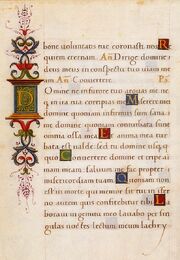 bone voluntatis tue coronasti nos. R
quiem eternam. An Dirige domine
deus meus in conspectu tuo viam me
am. An Convertere. Ps
Domine ne in furore tuo arguas me ne
q in ira tua corripias me. Miserere mei
domine quoniam infirmus sum sana me
domine quoniam conturbata sunt
omnia ossa mea. Et anima mea turba
ta est valde sed tu domine usque quo.
Convertere domine et eripe ani
mam meam salvum me fac propter
misericordiam tuam. Quoniam non
est in morte qui memor sit tui in infer
no autem quis confitebitur tibi. La
boravi in gemitu meo lavabo per sin
gulas noctes lectum meum lachry